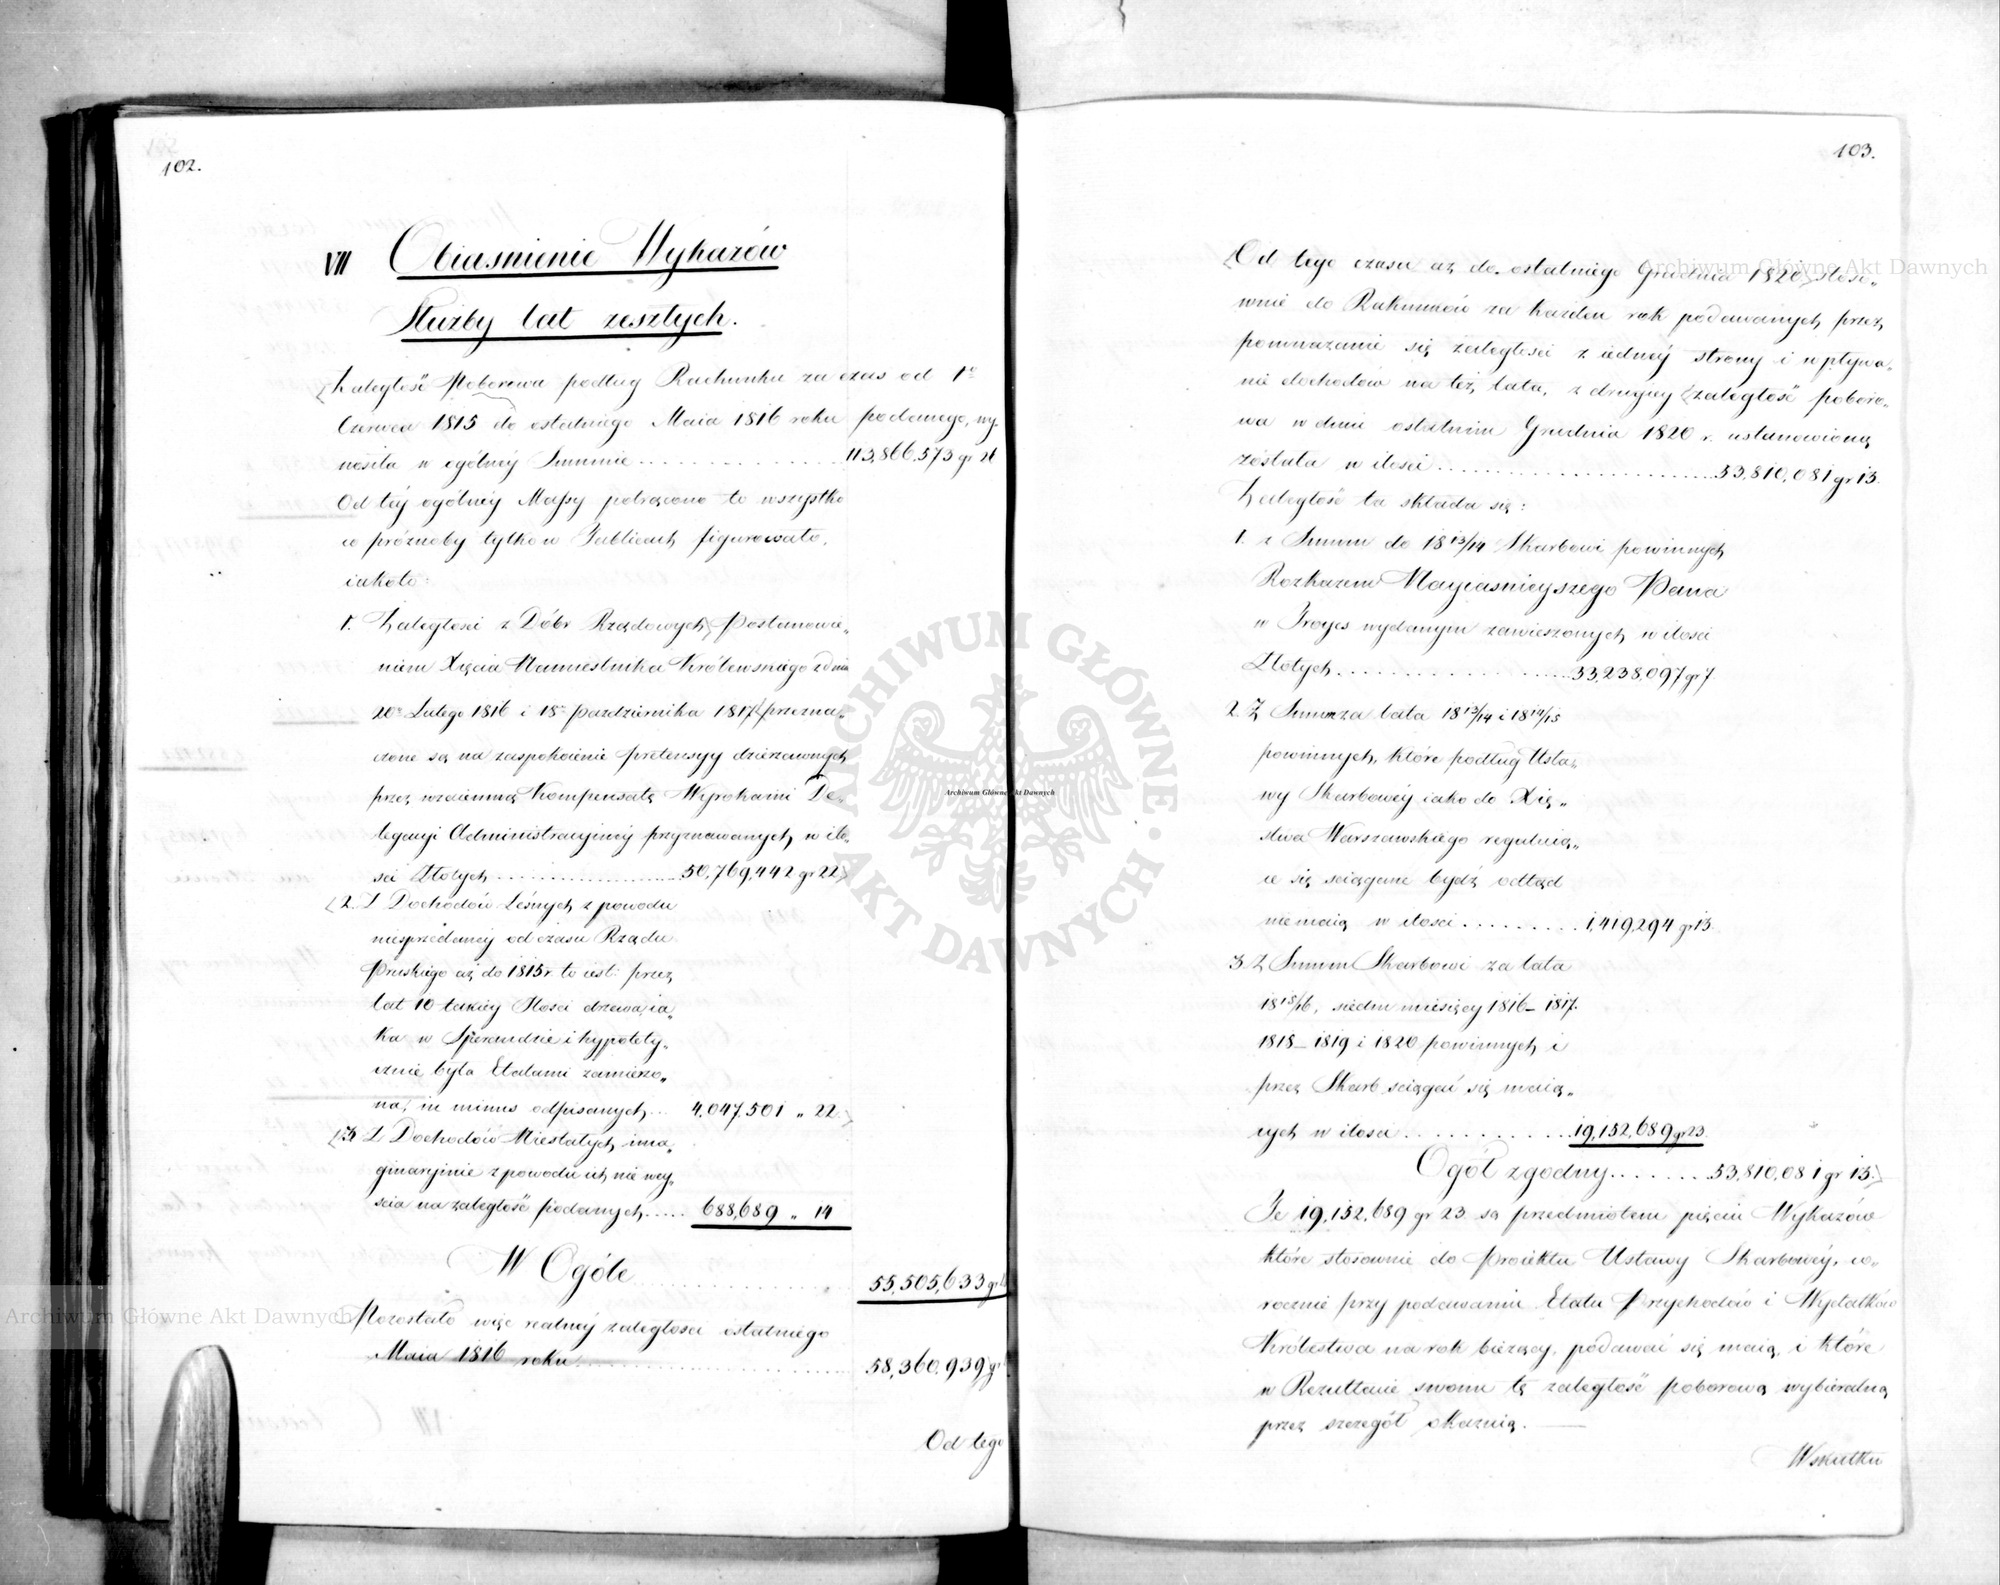 102.
VII Obiaśnienie Wykazów
Służby lat zeszłych.
Zaległość Poborowa podług Rachunku za czas od 1o
Czerwca 1815 do ostatniego Maia 1816 roku podanego, wy-
nosiła w ogólney Summie 113,866,573 gr
Od tey ogólney Massy potrącono to wszystko
co próżnoby tylko w Tablicach figurowało,
iakoto:
1. Zaległości z Dóbr Rządowych Postanowie-
niem Xięcia Namiestnika Królewskiego z dnia
20o Lutego 1816 i 18o Października 1817 przezna-
czone są na zaspokoienie pretensyy dzierżawnych
przez wzaiemną Kompensatę Wyrokami De-
legacyi Administracyiney przyznawanych w ilo-
ści Złotych 50,769,442 gr 22
2. Z Dochodów Leśnych z powodu
niesprzedaney od czasu Rządu
Pruskiego aż do 1815 r. to iest: przez
lat 10 takiey Ilości drzewa, ia-
ka w Sperandzie i hypotety-
cznie była Etatami zamierzo-
na, in minus odpisanych 4,047,501 „ 22
3. Z Dochodów Niestałych ima-
ginaryinie z powodu ich nie wey-
ścia na zaległość podanych 688,689 „ 14
W Ogóle 55,505,633 gr
Pozostało więc realney zaległości ostatniego
Maia 1816 roku 58,360,939 gr
Od tego
103.
Od tego czasu aż do ostatniego Grudnia 1820 stoso-
wnie do Rachunków za każden rok podawanych przez
pomnażanie się zaległości z iedney strony i wpływa-
nie dochodów na też lata, z drugiey zaległość poboro-
wa w dniu ostatnim Grudnia 1820 r. ustanowioną
została w ilości 53,810,081 gr 13.
Zaległość ta składa się:
1. z Summ do 1813/14 Skarbowi powinnych
Rozkazem Nayiaśnieyszego Pana
w Troyes wydanym zawieszonych w ilości
Złotych 33,238,097 gr 7.
2. Z Summ za lata 1813/14 i 1814/15
powinnych, które podług Usta-
wy Skarbowey iako do Xię-
stwa Warszawskiego reguluią-
ce się ściągane bydź odtąd
nie maią w ilości 1,419,294 gr 13.
3. Z Summ Skarbowi za lata
1815/16, siedm miesięcy 1816 – 1817.
1818 – 1819 i 1820 powinnych i
przez Skarb ściągać się maią-
cych w ilości 19,152,689 gr 23.
Ogół zgodny 53,810,081 gr 13.
Te 19,152,689 gr 23 są przedmiotem pięciu Wykazów
które stosownie do Proiektu Ustawy Skarbowey, co-
rocznie przy podawaniu Etatu Przychodów i Wydatków
Królestwa na rok bieżący, podawać się maią, i które
w Rezultacie swoim tę zaległość poborową wybieralną
przez szczegół okazuią.
Wskutku
Archiwum Główne Akt Dawnych
Archiwum Główne Akt Dawnych
Archiwum Główne Akt Dawnych
ARCHIWUM GŁÓWNE AKT DAWNYCH